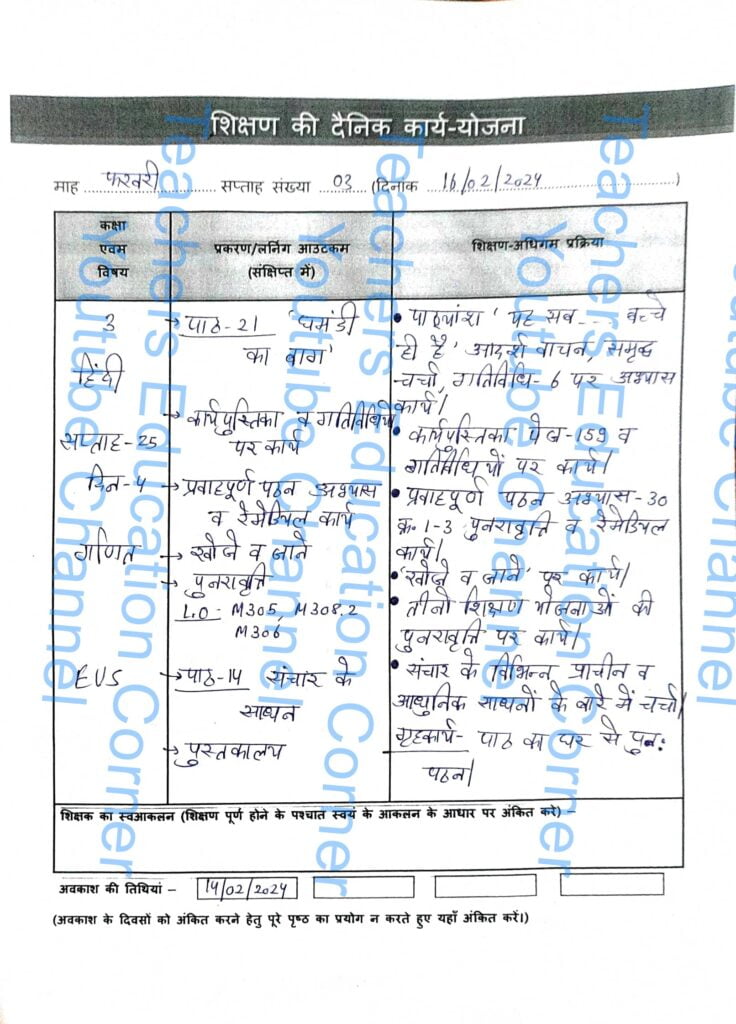 शिक्षण की दैनिक कार्य-योजना
माह फरवरी सप्ताह संख्या 03 (दिनांक 16/02/2024)
कक्षा
एवम
विषय
प्रकरण/लर्निग आउटकम
(संक्षिप्त में)
शिक्षण-अधिगम प्रक्रिया
3
हिंदी
सप्ताह-25
दिन-4
गणित
EVS
→ पाठ-21 'घमंडी
का बाग'
→ कार्यपुस्तिका व गतिविधियों
पर कार्य
→ प्रवाहपूर्ण पठन अभ्यास
व रेमेडियल कार्य
→ खोजे व जाने
→ पुनरावृत्ति
L.O - M305, M308.2
M306
→ पाठ-14 संचार के
साधन
→ पुस्तकालय
• पाठ्यांश 'यह सब.... बच्चे
ही है' आदर्श वाचन, समृद्ध
चर्चा, गतिविधि-6 पर अभ्यास
कार्य।
• कार्यपुस्तिका पेज-159 व
गतिविधियों पर कार्य।
• प्रवाहपूर्ण पठन अभ्यास-30
क्र.1-3 पुनरावृत्ति व रेमेडियल
कार्य।
• 'खोजे व जाने' पर कार्य।
• तीनो शिक्षण योजनाओं की
पुनरावृत्ति पर कार्य।
• संचार के विभिन्न प्राचीन व
आधुनिक साधनों के बारे में चर्चा।
गृहकार्य- पाठ का घर से पुनः
पठन।
शिक्षक का स्वआकलन (शिक्षण पूर्ण होने के पश्चात स्वयं के आकलन के आधार पर अंकित करें) –
अवकाश की तिथियां – 14/02/2024
(अवकाश के दिवसों को अंकित करने हेतु पूरे पृष्ठ का प्रयोग न करते हुए यहाँ अंकित करें।)
Teachers Education Corner
Youtube Channel
Teachers Education Corner
Youtube Channel
Teachers Education Corner
Youtube Channel